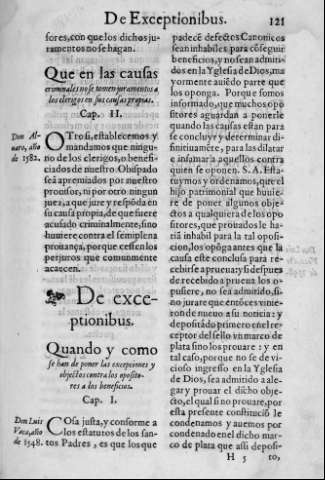 De Exceptionibus.
121
sores, con que los dichos ju-
ramentos no se hagan.
Que en las causas
criminales no se tomen juramentos a
los clerigos en sus causas propias.
Cap. II.
Don Al-
uaro, año
de 1582.
OTrosi, establecemos y
mandamos que ningu-
no de los clerigos, o benefi-
ciados de nuestro Obispado
sea apremiados por nuestro
prouisor, ni por otro ningun
juez, a que jure y respõda en
su causa propia, de que fuere
acusado criminalmente, sino
huuiere contra el semiplena
prouança, porque cessen los
perjuros que comunmente
acaecen.
De exce-
ptionibus.
Quando y como
se han de poner las excepciones y
objectos contra los oposito-
res a los beneficios.
Cap. I.
Don Luis
Vaca, año
de 1548.
COsa justa, y conforme a
los estatutos de los san-
tos Padres, es que los que
padecẽ defectos Canonicos
sean inhabiles para cõseguir
beneficios, y no sean admiti-
dos en la Yglesia de Dios, ma
yormente auiẽdo parte que
los oponga. Porque somos
informado, que muchos opo
sitores aguardan a ponerle
quando las causas estan para
se concluyr y determinar di-
finitiuamẽte, para las dilatar
e infamar a aquellos contra
quien se oponen. S.A. Esta-
tuymos y ordenamos, que el
hijo patrimonial que huuie-
re de poner algunos objec-
tos a qualquiera de los opo
sitores, que prouados le ha-
riã inhabil para la tal oposi-
cion, los opõga antes que la
causa este conclusa para re-
cebirse a prueua: y si despues
de recebido a prueua los o-
pusiere, no sea admitido, si-
no jurare que entõces vinie-
ron de nueuo a su noticia: y
depositãdo primero en el re-
ceptor del sello vn marco de
plata sino los prouare: y en
tal caso, porque no se de vi-
cioso ingresso en la Yglesia
de Dios, sea admitido a ale-
gar y prouar el dicho obje-
cto, el qual si no prouare, por
esta presente constituciõ le
condenamos y auemos por
condenado en el dicho mar-
co de plata que assi deposi-
H 5
to,